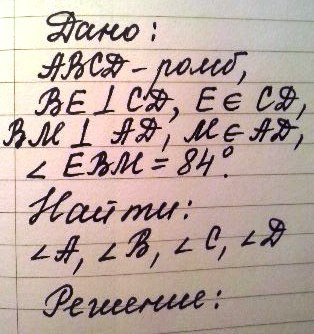 Дано:
ABCD - ромб,
BE ⊥ CD, E ∈ CD,
BM ⊥ AD, M ∈ AD,
∠ EBM = 84°.
Найти:
∠A, ∠B, ∠C, ∠D
Решение: